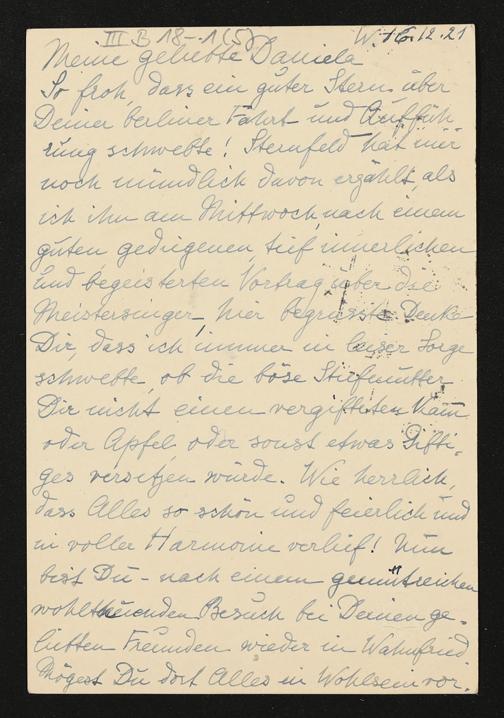 III B 18-1(5)
W. 16.12.21
Meine geliebte Daniela
So froh, dass ein guter Stern über
Deiner berliner Fahrt und Auffüh
rung schwebte! Sternfeld hat mir
noch mündlich davon erzählt, als
ich ihn am Mittwoch, nach einem
guten gediegenen, tief innerlichen
und begeisterten Vortrag über die
Meistersinger, hier begrüsste. Denke
Dir, dass ich immer in leiser Sorge
schwebte, ob die böse Stiefmutter
Dir nicht einen vergifteten Kam
oder Apfel, oder sonst etwas Gifti-
ges versetzen würde. Wie herrlich,
dass Alles so schön und feierlich und
in voller Harmonie verlief! Nun
bist Du - nach einem gemütreichen
wohlthuenden Besuch bei Deinen ge-
liebten Freunden wieder in Wahnfried
Mögest Du dort Alles in Wohlsein vor.